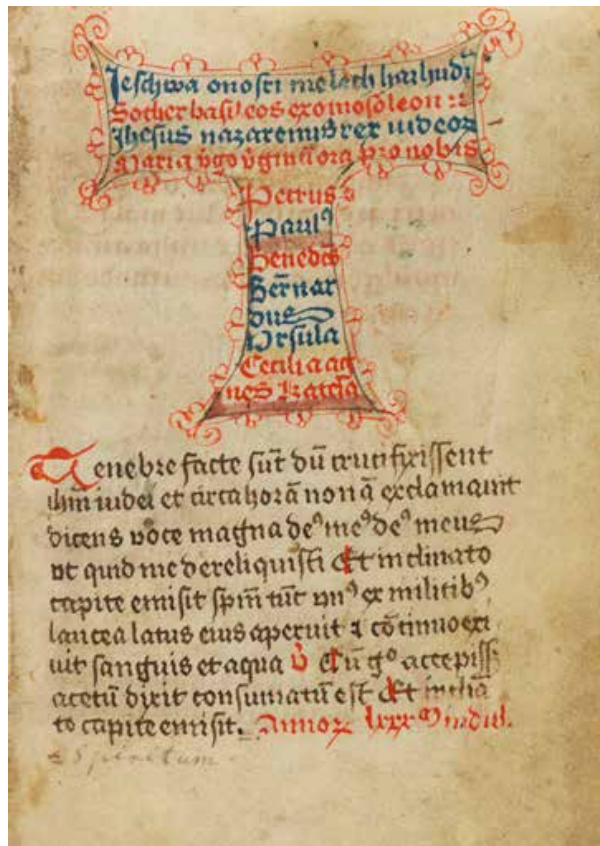 Jeschwa onosri melech hariudi
Sother basileos exomosoleon
Jhesus nazarenus rex iudeoꝝ
Maria v̄go v̄ginū ora pro nobis
Petrus
Paulꝰ
Benedc̄s
Bernar
dus
Vrsula
Cecilia ag
nes katēīa
Tenebre facte sūt dū crucifixissent
ihm̄ iudei et circa horā nonā exclamauit
dicens voce magna deꝰ meꝰ deꝰ meus
vt quid me dereliquisti Et inclinato
capite emisit sp̄m tūc vnꝰ ex militibꝰ
lancea latus eius aperuit ⁊ cōtinuo exi
uit sanguis et aqua v̄ Cū gͦ accepiss
acetū dixit consumatū est Et inclīa
to capite emisit. Annoꝝ lxxx ꝰ indul.
Spiritum